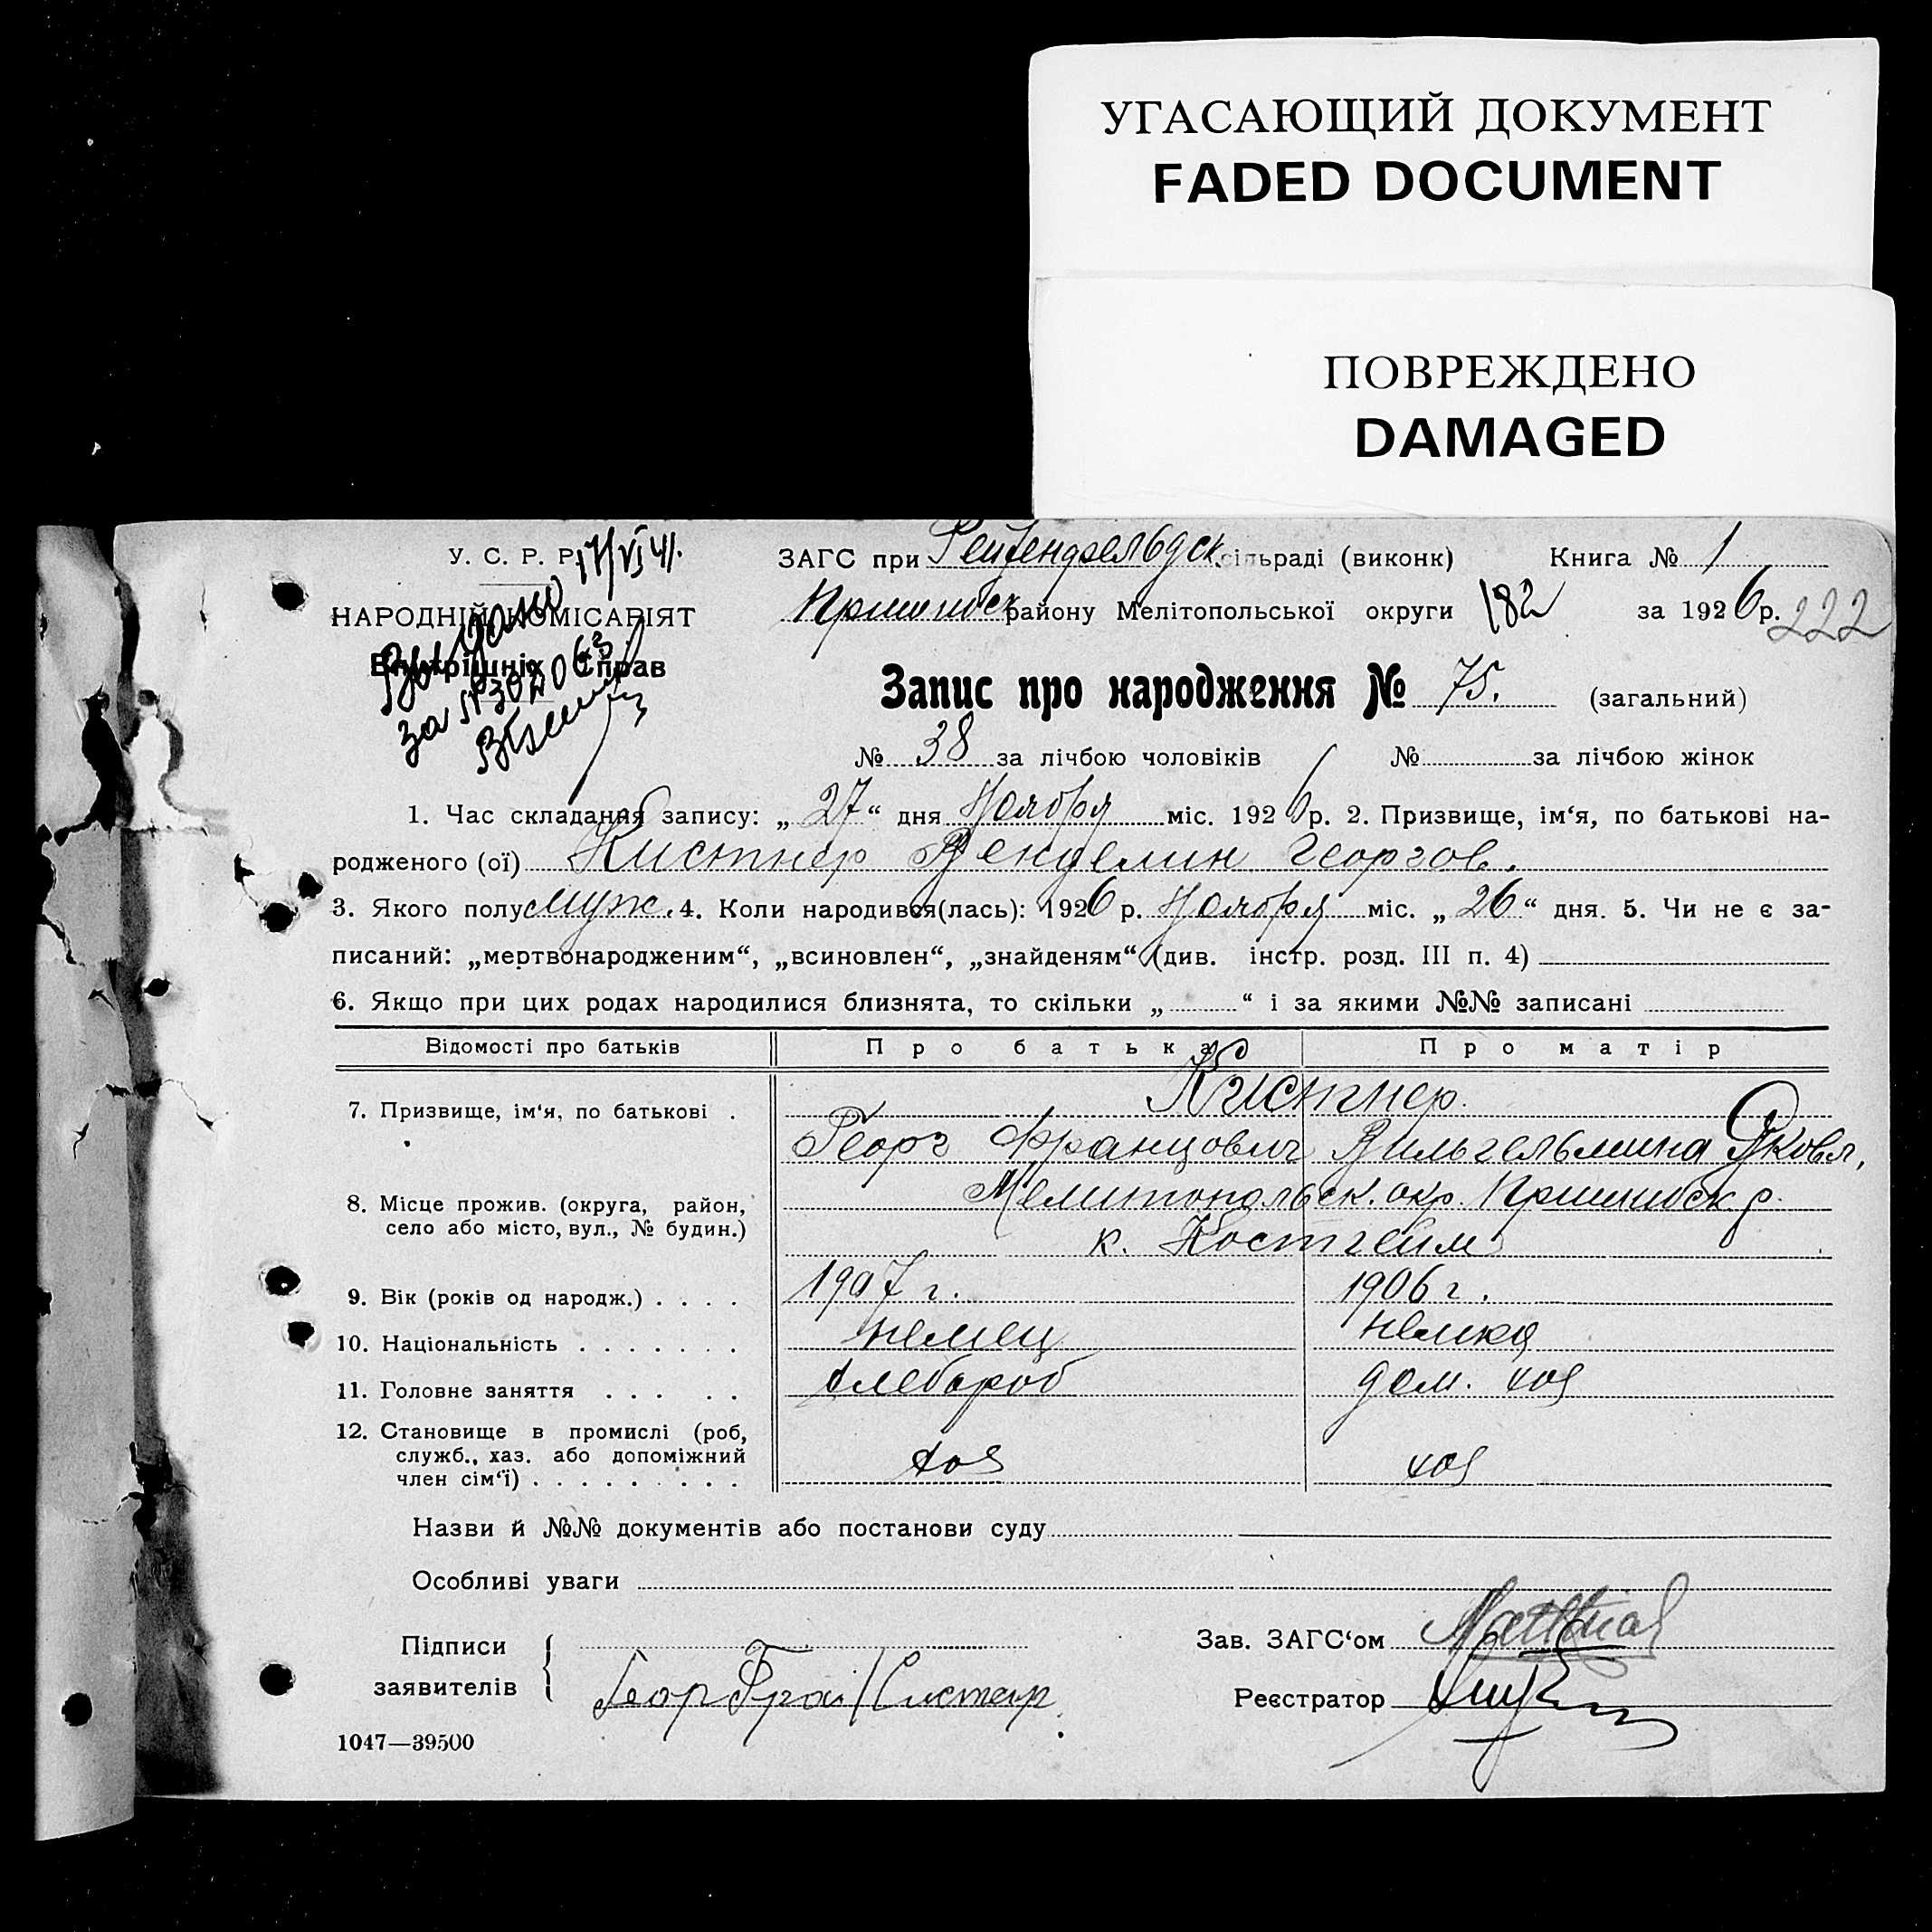 УГАСАЮЩИЙ ДОКУМЕНТ
FADED DOCUMENT
ПОВРЕЖДЕНО
DAMAGED
У. С. Р. Р. 17/VI 41.
НАРОДНІЙ КОМІСАРІЯТ
Внутрішніх Справ
Выдано
за №
ЗАГС при Рейхенфельдск. сільраді (виконк) Книга № 1
Пришибск району Мелітопольської округи 182 за 1926 р. 222
Запис про народження № 75. (загальний)
№ 38 за лічбою чоловіків № за лічбою жінок
1. Час складання запису: „27“ дня Ноября міс. 1926 р. 2. Призвище, ім‘я, по батькові на-
родженого (ої) Кистнер Венделин Георгов.
3. Якого полу муж. 4. Коли народився(лась): 1926 р. Ноября міс. „26“ дня. 5. Чи не є за-
писаний: „мертвонародженим“, „всиновлен“, „знайденям“ (див. інстр. розд. III п. 4)
6. Якщо при цих родах народилися близнята, то скільки „ “ і за якими №№ записані
Відомості про батьків Про батька Про матір
7. Призвище, ім‘я, по батькові . Кистнер.
Георг Францович Вильгельмина Яковл.
8. Місце прожив. (округа, район, Мелитопольск. окр. Пришибск. р.
село або місто, вул., № будин.) к. Костгейм
9. Вік (років од народж.) . . . . 1907 г. 1906 г.
10. Національність . . . . . . . немец немка
11. Головне заняття . . . . . хлебороб дом. хоз
12. Становище в промислі (роб,
служб., хаз. або допоміжний хоз хоз
член сім‘ї) . . . . . . . . .
Назви й №№ документів або постанови суду
Особливі уваги
Підписи Зав. ЗАГС‘ом
заявителів Реєстратор
1047—39500